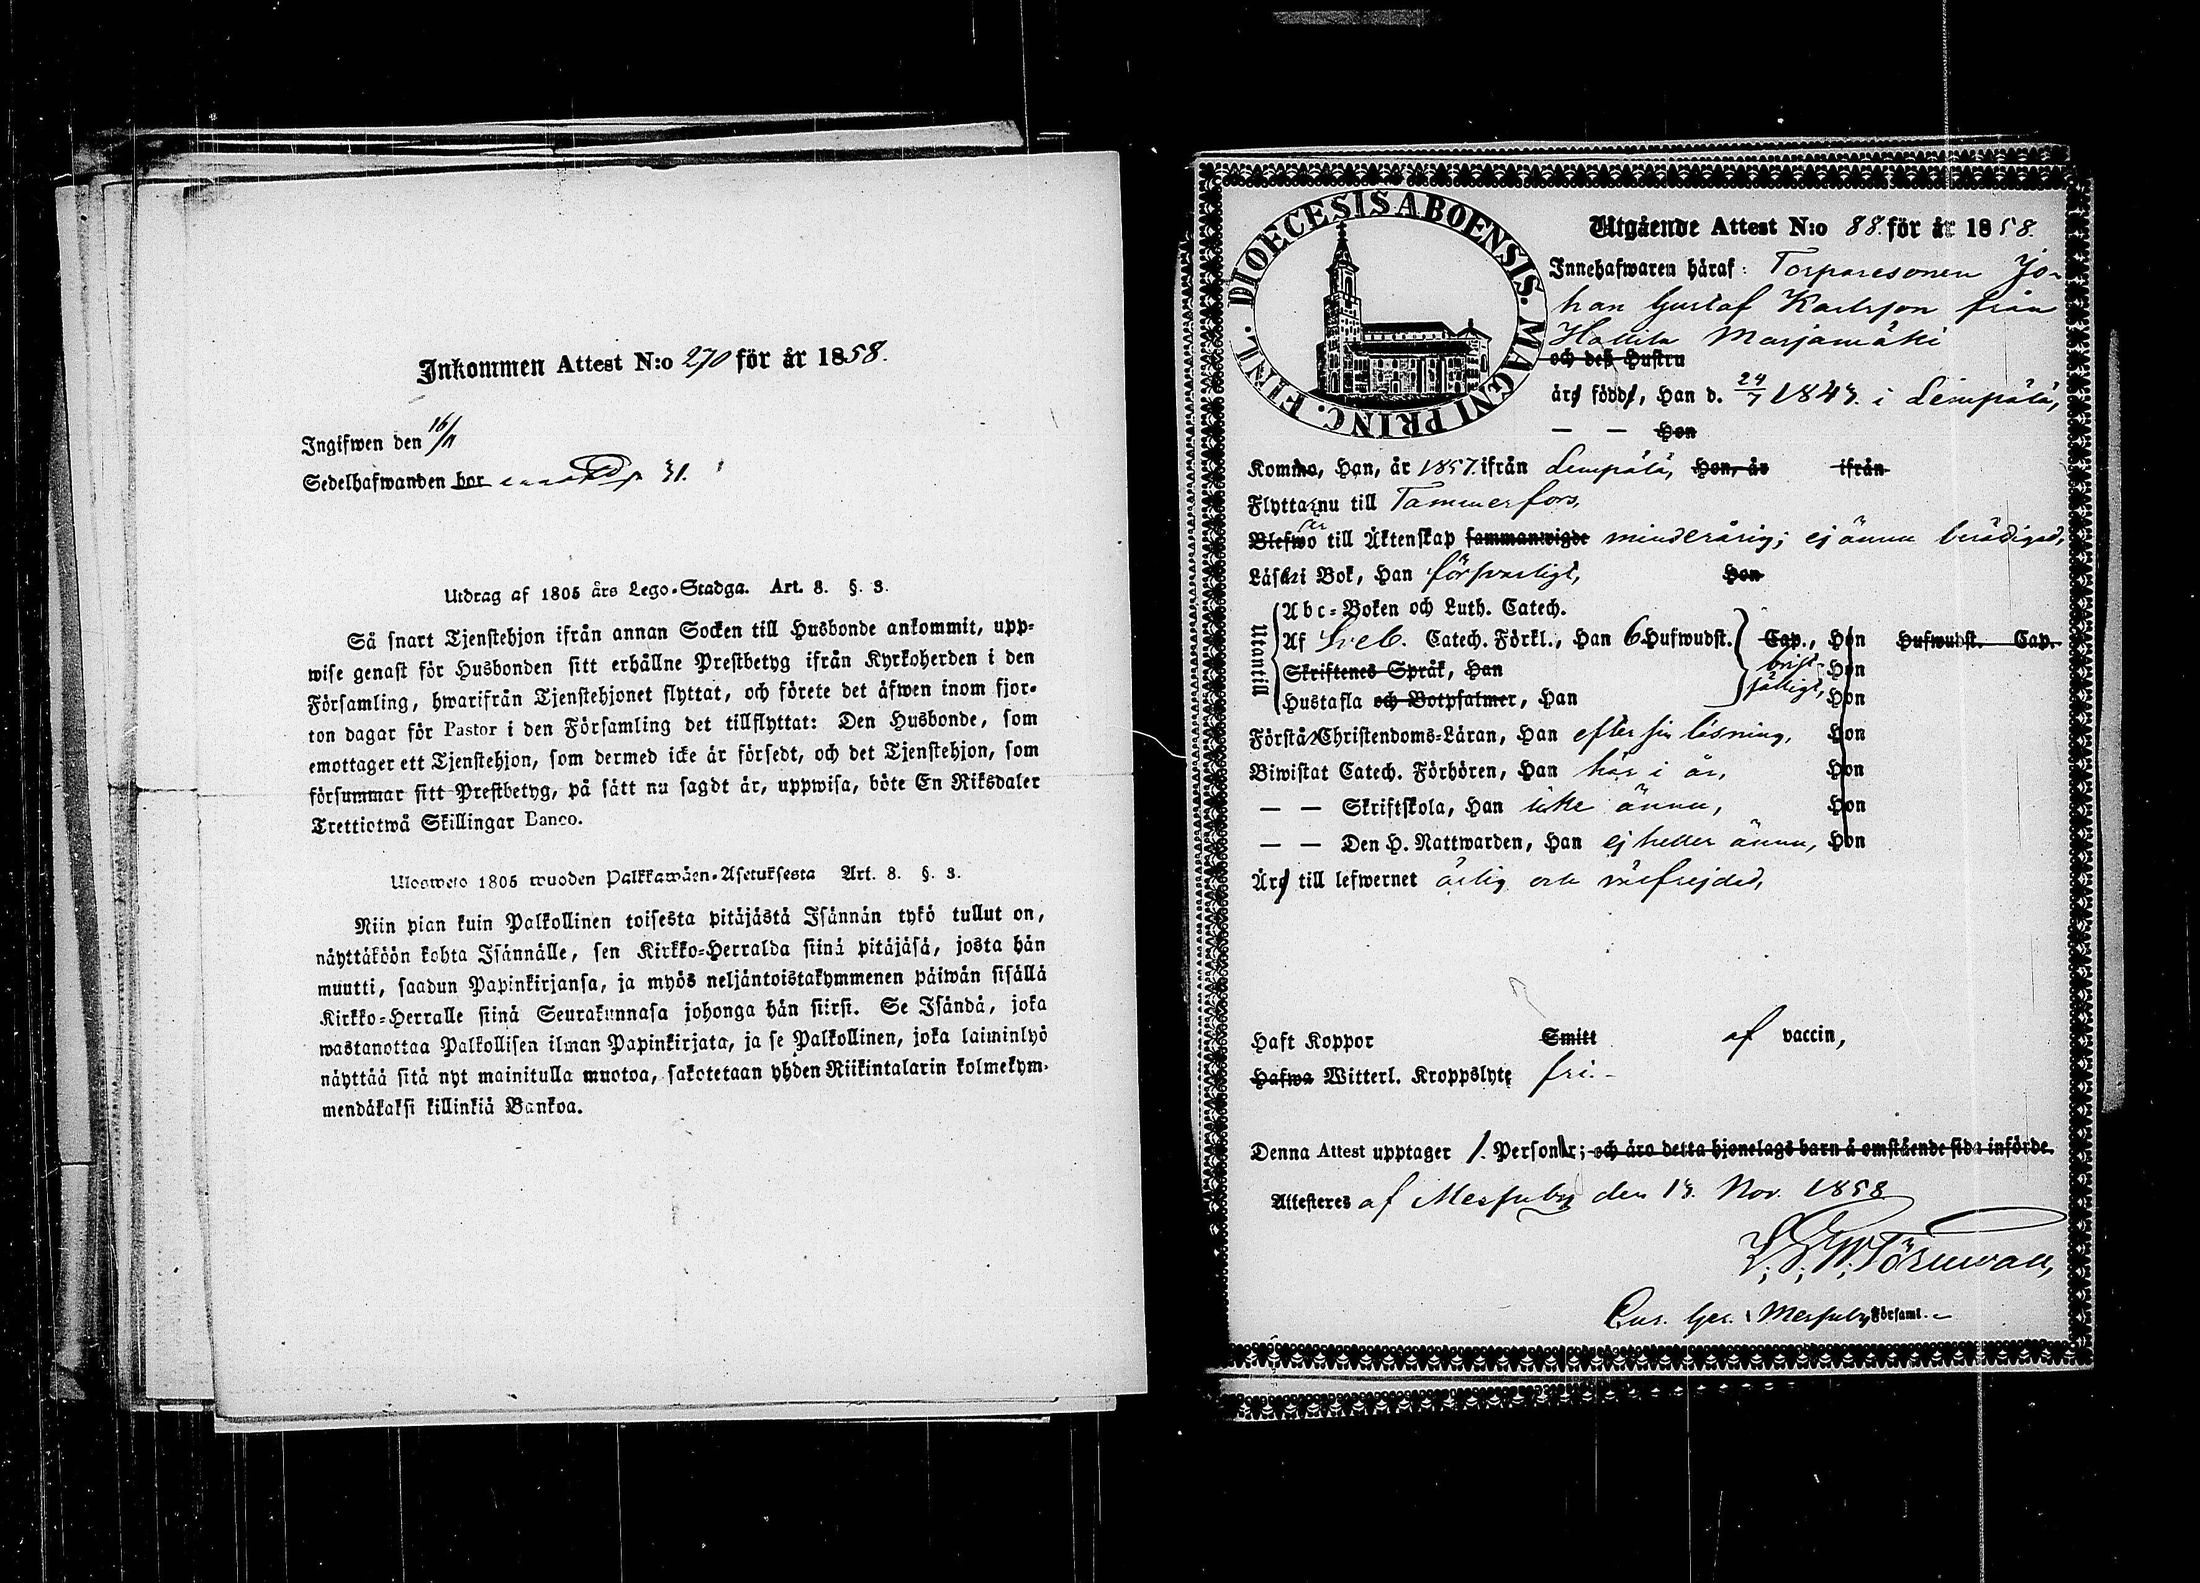 Inkommen Attest N:o 270 för år 1858.
Ingifwen den 16/11
Sedelhafwanden bor 31.
Utdrag af 1805 års Lego-Stadga. Art. 8. §. 3.
Så snart Tjenstehjon ifrån annan Socken till Husbonde ankommit, upp-
wise genast för Husbonden sitt erhållne Prestbetyg ifrån Kyrkoherden i den
Församling, hwarifrån Tjenstehjonet flyttat, och förete det äfwen inom fjor-
ton dagar för Pastor i den Församling det tillflyttat: Den Husbonde, som
emottager ett Tjenstehjon, som dermed icke är försedt, och det Tjenstehjon, som
försummar sitt Prestbetyg, på sätt nu sagdt är, uppwisa, böte En Riksdaler
Trettiotwå Skillingar Banco.
Ulosweto 1805 wuoden Palkkawäen-Asetuksesta Art. 8. §. 3.
Niin pian kuin Palkollinen toisesta pitäjästä Isännän tykö tullut on,
näyttäköön kohta Isännälle, sen Kirkko-Herralda siinä pitäjäsä, josta hän
muutti, saadun Papinkirjansa, ja myös neljäntoistakymmenen päiwän sisällä
Kirkko-Herralle siinä Seurakunnasa johonga hän siirsi. Se Isändä, joka
wastanottaa Palkollisen ilman Papinkirjata, ja se Palkollinen, joka laiminlyö
näyttää sitä nyt mainitulla muotoa, sakotetaan yhden Riikintalarin kolmekym-
mendäkaksi killinkiä Bankoa.
DIOECESIS ABOENSIS. MAGNI PRINC. FINL.
Utgående Attest N:o 88. för år 1858.
Innehafwaren häraf: Torparesonen Jo-
han Gustaf Karlsson från
Hakkila Marjamäki
och deß Hustru
är född, Han d. 24/7 1843. i Lempälä,
— — Hon
Komme, Han, år 1857. ifrån Lempälä, Hon, år ifrån
Flyttar nu till Tammerfors.
Blefwo är till Äktenskap sammanwigde minderårig; ej ännu berättigad,
Läser i Bok, Han försvarligt, Hon
Utantill
Abc-Boken och Luth. Catech.
Af Sveb. Catech. Förkl., Han 6 Hufwudst. Cap., Hon Hufwudst. Cap.
Skriftenes Språk, Han brist- Hon
Hustafla och Botpsalmer, Han fälligt, Hon
Förstår Christendoms-Läran, Han efter sin läsning, Hon
Biwistat Catech. Förhören, Han här i år, Hon
— — Skriftskola, Han icke ännu, Hon
— — Den H. Nattwarden, Han ej heller ännu, Hon
Är till lefwernet ärlig och välfrejdad,
Haft Koppor Smitt af vaccin,
Hafwa Witterl. Kroppslyte fri.-
Denna Attest upptager 1. Person; och äro detta hjonelags barn å omstående sida införde.
Attesteres af Messuby den 13. Nov. 1858
Törnwall,
Messuby Församl.